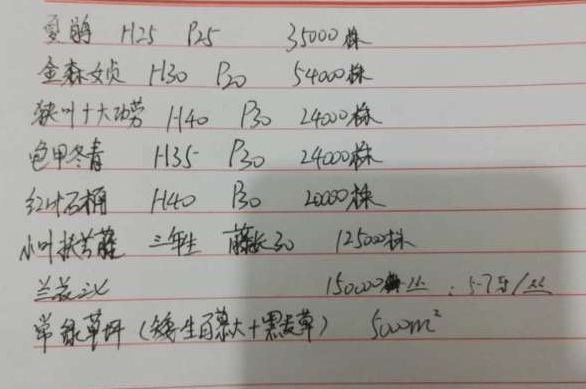 夏鹃 H25 P25 35000株
金森女贞 H30 P20 54000株
狭叶十大功劳 H40 P30 24000株
龟甲冬青 H35 P30 24000株
红叶石楠 H40 P30 20000株
小叶扶芳藤 三年生 藤长30 12500株
兰花三七 150000丛 , 5-7芽/丛
常绿草坪（矮生百慕大+黑麦草） 500m²